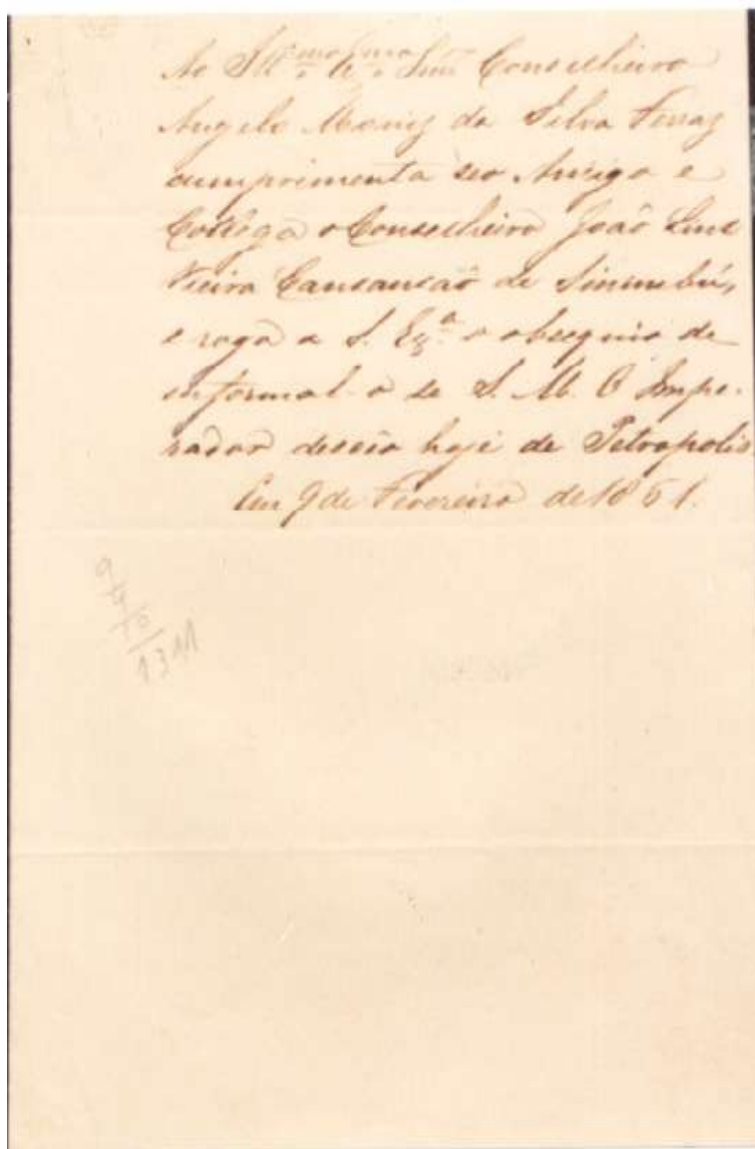 Ao Ill.mo e Ex.mo Snr. Conselheiro
Angelo Moniz da Silva Ferraz
cumprimenta seo Amigo e
Collega o Conselheiro João Lins
Vieira Cansansaõ de Sinimbú,
e roga a S. Ex.a o obsequio de
informal-o se S. M. O Impe-
rador desceo hoje de Petropolis
Em 9 de Fevereiro de 1861.
9
4
1311